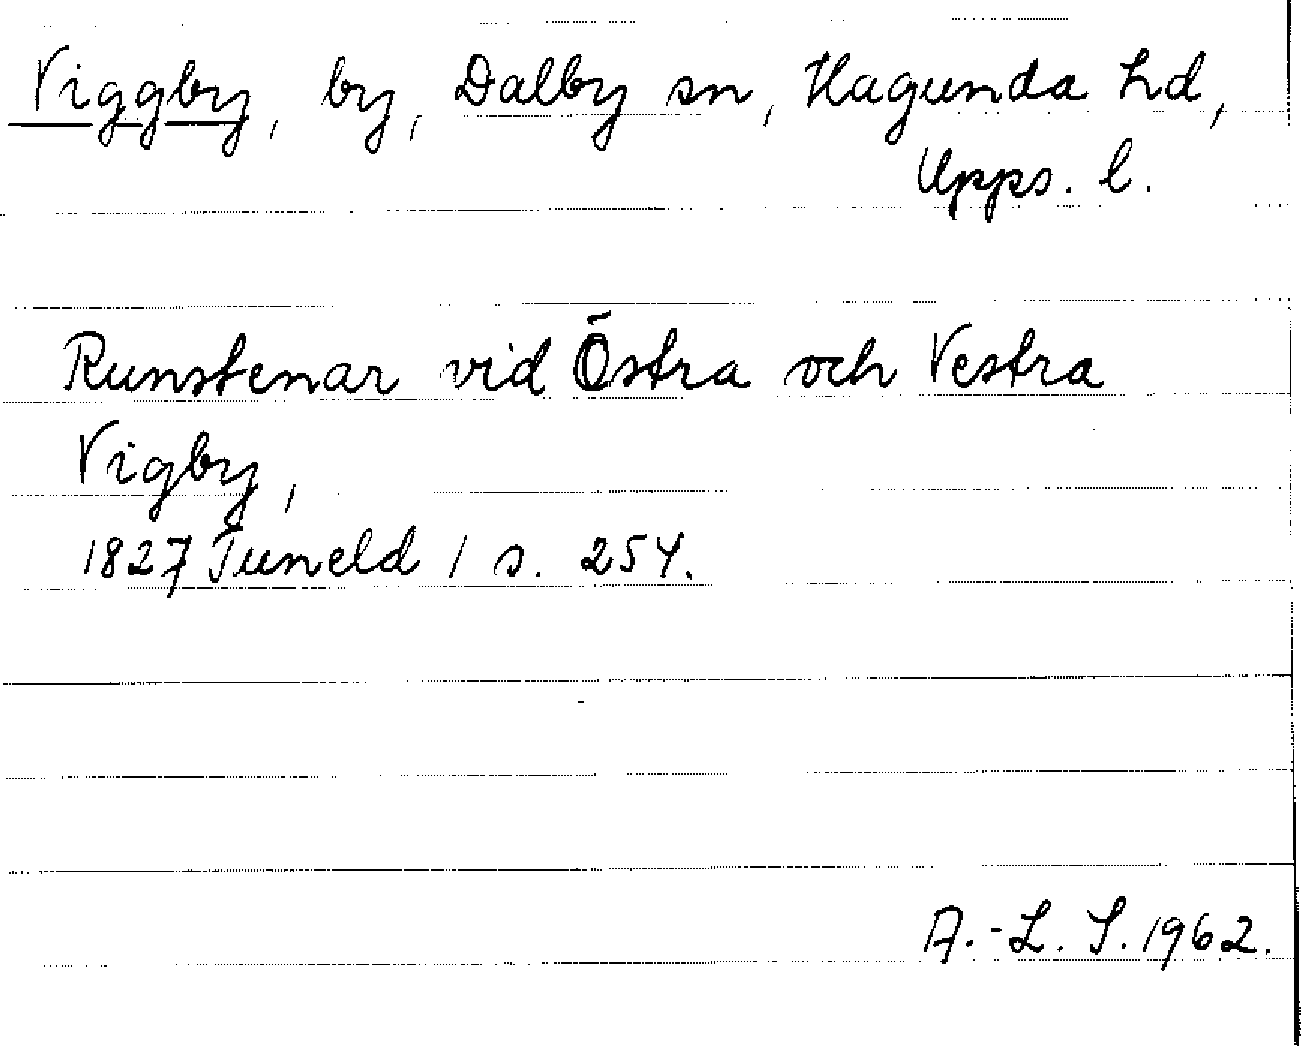 Viggby, by, Dalby sn, Hagunda hd,
Upps. l.
Runstenar vid Östra och Vestra
Vigby,
1827 Tuneld 1 s. 254.
A.-L. S. 1962.